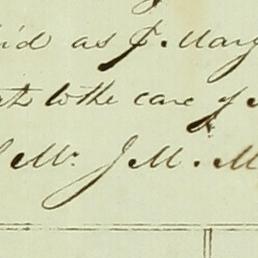 as J. Mary
to the care of
Mr. J M. M